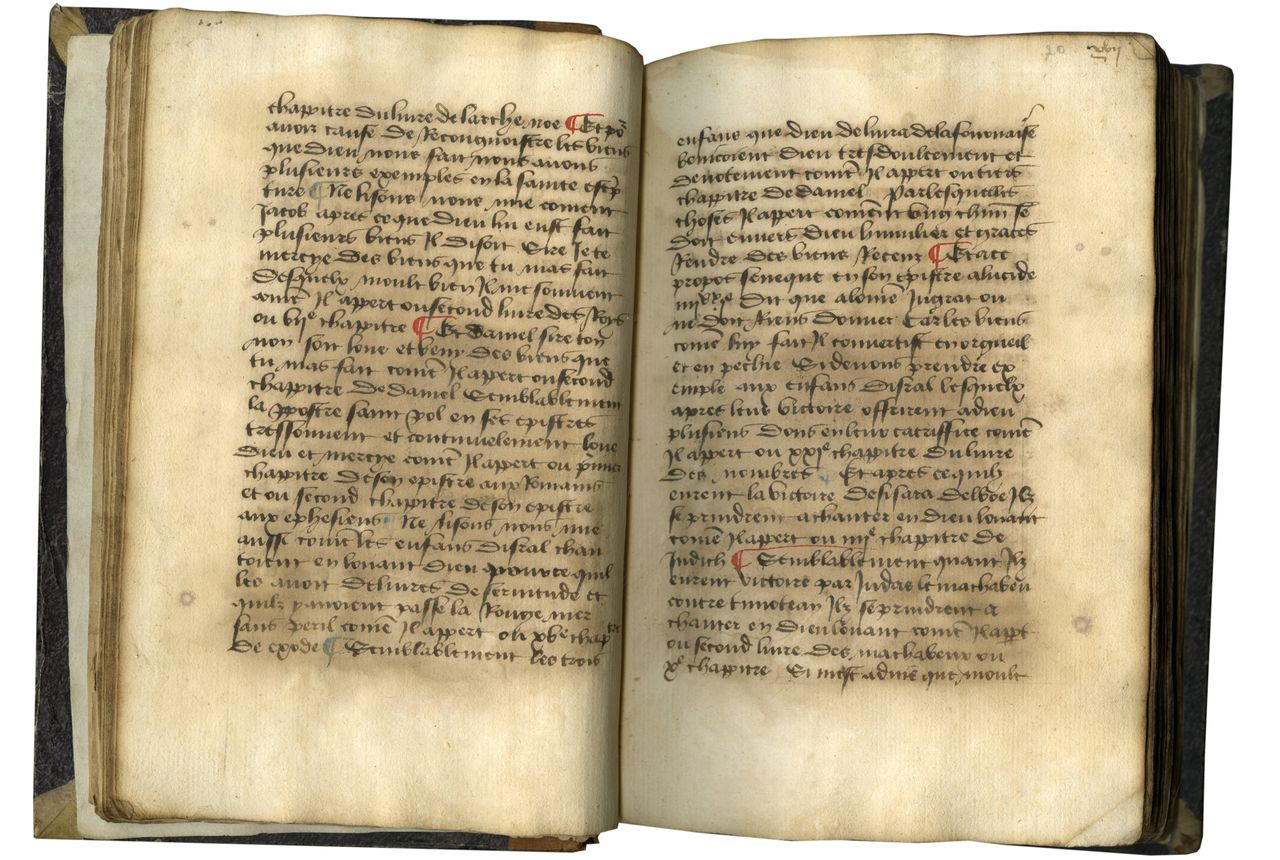 chappitre du livre de larche noe ¶ Et po͛
avoir cause de Recongnoistre les biens
que dieu nous fait nous avons
plusieurs exemples en la sainte esc͛p
ture ¶ Ne lisons nous mie coment
Jacob apres ce que dieu lui eust fait
plusieurs biens Il disoit Sire Je te
mercye des biens que tu mas fait
Desquelx moult bien Il
com̃t Il appert ou second livre des Roys
ou vije chappitre ¶ Et daniel sire ton
non soit loue et beny des biens que
tu mas fait com̃t Il appert ou second
chappitre de daniel Semblablement
la ppostre saint pol en ses epistres
tressouvent et continuelement loue
Dieu et mercye com̃t Il appert ou p̃mier
chappitre de son epistre aux Romains
et ou second chappitre de son epistre
aux ephesiens Ne lisons nous mie
aussi com̃t les enfans disral chan
toient en louant dieu pource quil
les avoit delivres de servitude et
quilz avoient passe la Rouge mer
sans peril com̃t Il appert ou xve chaptre
De exode ¶ Semblablement les trois
xvij
20
enfans que dieu delivra de la fournaise
benicoient dieu tresdoulcement et
devotement com̃t Il appert ou tiers
chappitre de daniel Par lesquelles
choses Il appert com̃t ung chũn se
doit envers dieu humilier et graces
Rendre des biens Receuz ¶ Et a ce
propos seneque en son epistre a lucide
Dit que a lom̃e Ingrat on
ne doit Riens donner Car les biens
com̃e luy fait Il convertist en orgueil
et en pechie Si devons prendre ex
emple aux enfans disral lesquelx
apres leur victoire offrirent a dieu
plusieurs dons en leur sacriffice com̃t
Il appert ou xxje chappitre du livre
des nombres Et apres ce quilz
eurent la victoire de sisara delboe Ilz
se prindrent a chanter en dieu louant
com̃t Il appert ou iiije chappitre de
Judich ¶ Semblablement quant Ilz
eurent victoire par Judas le machabeu
contre timotean Ilz se prindrent a
chanter en dieu louant com̃t Il appt
ou second livre des machabeux ou
xe chappitre Si mest advis que moult